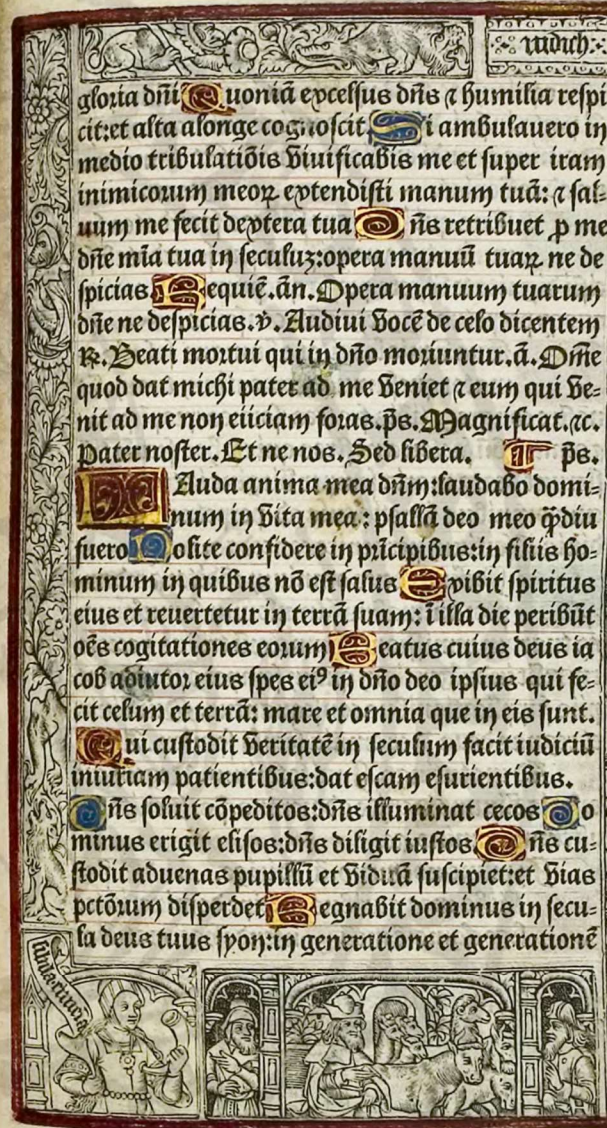 iudich:
gloria dñi Quoniã excelsus dñs ⁊ humilia respi
cit:et alta alonge cognoscit Si ambulauero in
medio tribulatiõis viuificabis me et super iram
inimicorum meoꝝ extendisti manum tuã: ⁊ sal-
uum me fecit dextera tua Dñs retribuet ꝓ me
dñe mĩa tua in seculuz:opera manuũ tuaꝝ ne de
spicias Requiẽ.ãn. Opera manuum tuarum
dñe ne despicias.℣. Audiui vocẽ de celo dicentem
℟. Beati mortui qui in dño moriuntur.ã. Om̃e
quod dat michi pater ad me veniet ⁊ eum qui ve-
nit ad me non eiiciam foras.p̃s. Magnificat.⁊c.
Pater noster. Et ne nos. Sed libera. p̃s.
LAuda anima mea dñm:laudabo domi-
num in vita mea: psallã deo meo q̃diu
fuero Nolite confidere in prĩcipibus:in filiis ho-
minum in quibus nõ est salus Exibit spiritus
eius et reuertetur in terrã suam: ĩ illa die peribũt
oẽs cogitationes eorum Beatus cuius deus ia
cob adiutor eius spes eiꝰ in dño deo ipsius qui fe-
cit celum et terrã: mare et omnia que in eis sunt.
Qui custodit veritatẽ in seculum facit iudiciũ
iniuriam patientibus:dat escam esurientibus.
Dñs soluit cõpeditos:dñs illuminat cecos Do
minus erigit elisos:dñs diligit iustos Dñs cu-
stodit aduenas pupillũ et viduã suscipiet:et vias
pctõrum disperdet Regnabit dominus in secu-
la deus tuus syon:in generatione et generationẽ